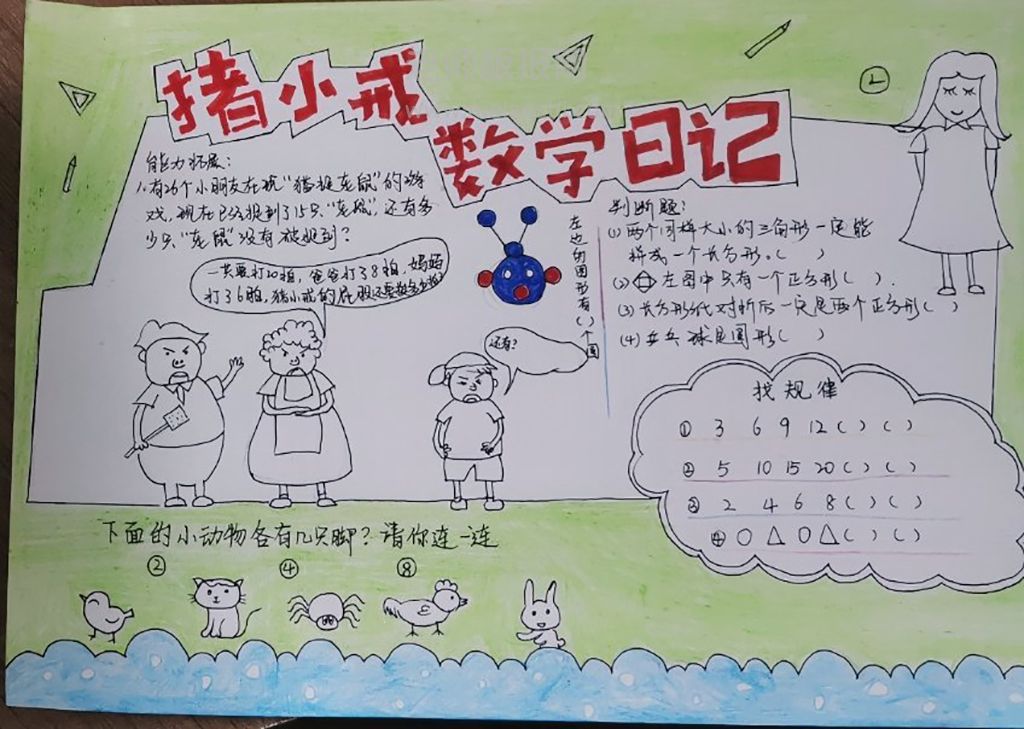 猪小戒
数学日记
能力拓展：
1、有26个小朋友在玩“猫捉老鼠”的游
戏，现在已经捉到了15只“老鼠”，还有多
少只“老鼠”没有被捉到？
一共要打20拍，爸爸打了8拍，妈妈
打了6拍，猪小戒的屁股还要挨多少拍？
还有？
左边的图形有（ ）个圆
判断题：
(1) 两个同样大小的三角形一定能
拼成一个长方形。（ ）
(2) 左图中只有一个正方形（ ）.
(3) 长方形纸对折后一定是两个正方形（ ）
(4) 乒乓球是圆形（ ）
找规律
① 3 6 9 12 ( ) ( )
② 5 10 15 20 ( ) ( )
③ 2 4 6 8 ( ) ( )
④ ○ △ ○ △ ( ) ( )
下面的小动物各有几只脚？请你连一连
② ④ ⑧